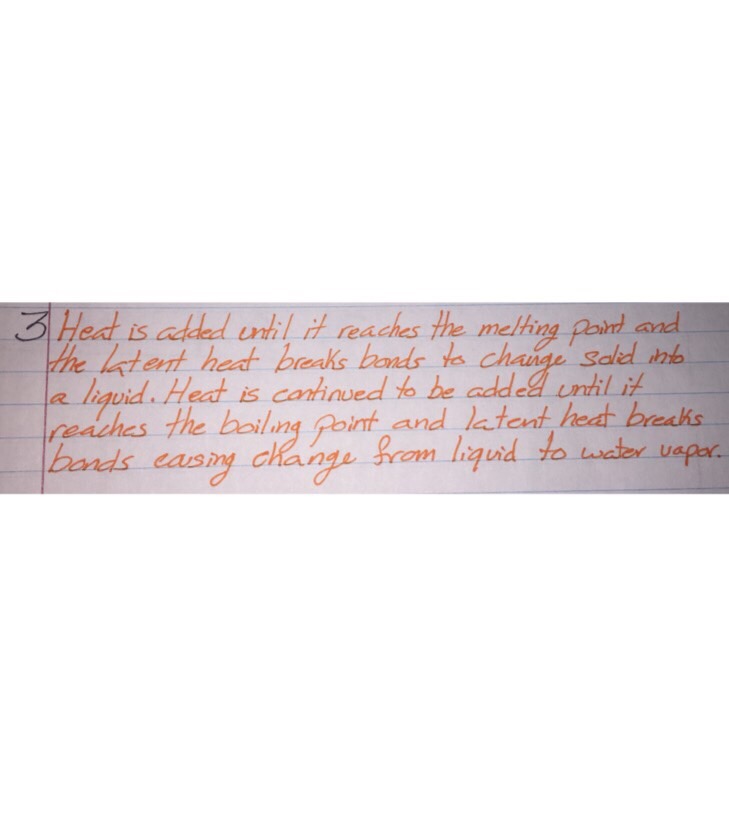 3 Heat is added until it reaches the melting point and
the latent heat breaks bonds to change solid into
a liquid. Heat is continued to be added until it
reaches the boiling point and latent heat breaks
bonds causing change from liquid to water vapor.